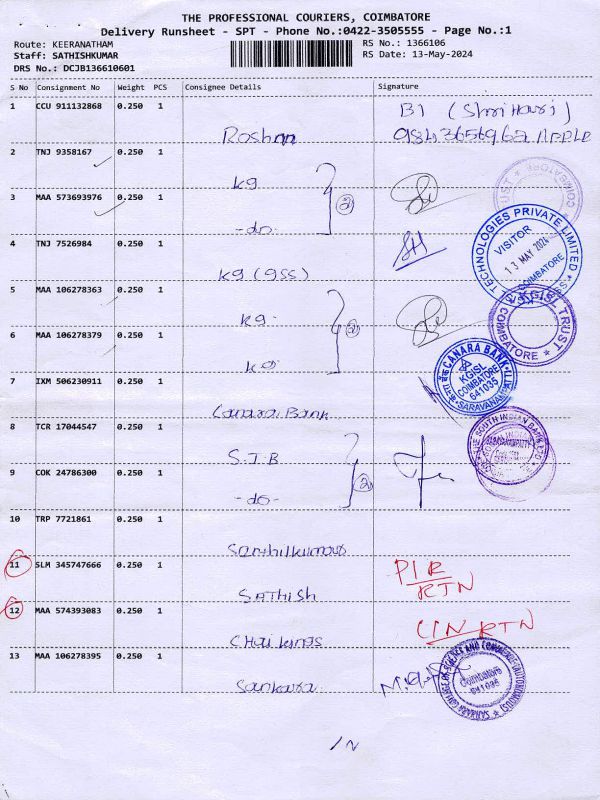 THE PROFESSIONAL COURIERS, COIMBATORE
Delivery Runsheet - SPT - Phone No.:0422-3505555 - Page No.:1
Route: KEERANATHAM
Staff: SATHISHKUMAR
DRS No.: DCJB136610601
RS No.: 1366106
RS Date: 13-May-2024
S No Consignment No Weight PCS Consignee Details Signature
1 CCU 911132868 0.250 1
Roshan
B1 (Shri Hari)
2 TNJ 9358167 0.250 1
kg
3 MAA 573693976 0.250 1
-do-
2
4 TNJ 7526984 0.250 1
kg (gss)
TECHNOLOGIES PRIVATE LIMITED
VISITOR
13 MAY 2024
COIMBATORE
5 MAA 106278363 0.250 1
kg
6 MAA 106278379 0.250 1
kg
2
KGISL TRUST
COIMBATORE
7 IXM 506230911 0.250 1
Canara Bank
CANARA BANK
KGISL
COIMBATORE
641035
8 TCR 17044547 0.250 1
S.I.B
9 COK 24786300 0.250 1
-do-
2
THE SOUTH INDIAN BANK LTD
10 TRP 7721861 0.250 1
Senthilkumar
11 SLM 345747666 0.250 1
Sathish
RTN
12 MAA 574393083 0.250 1
RTN
13 MAA 106278395 0.250 1
Sankara
Coimbatore
641035